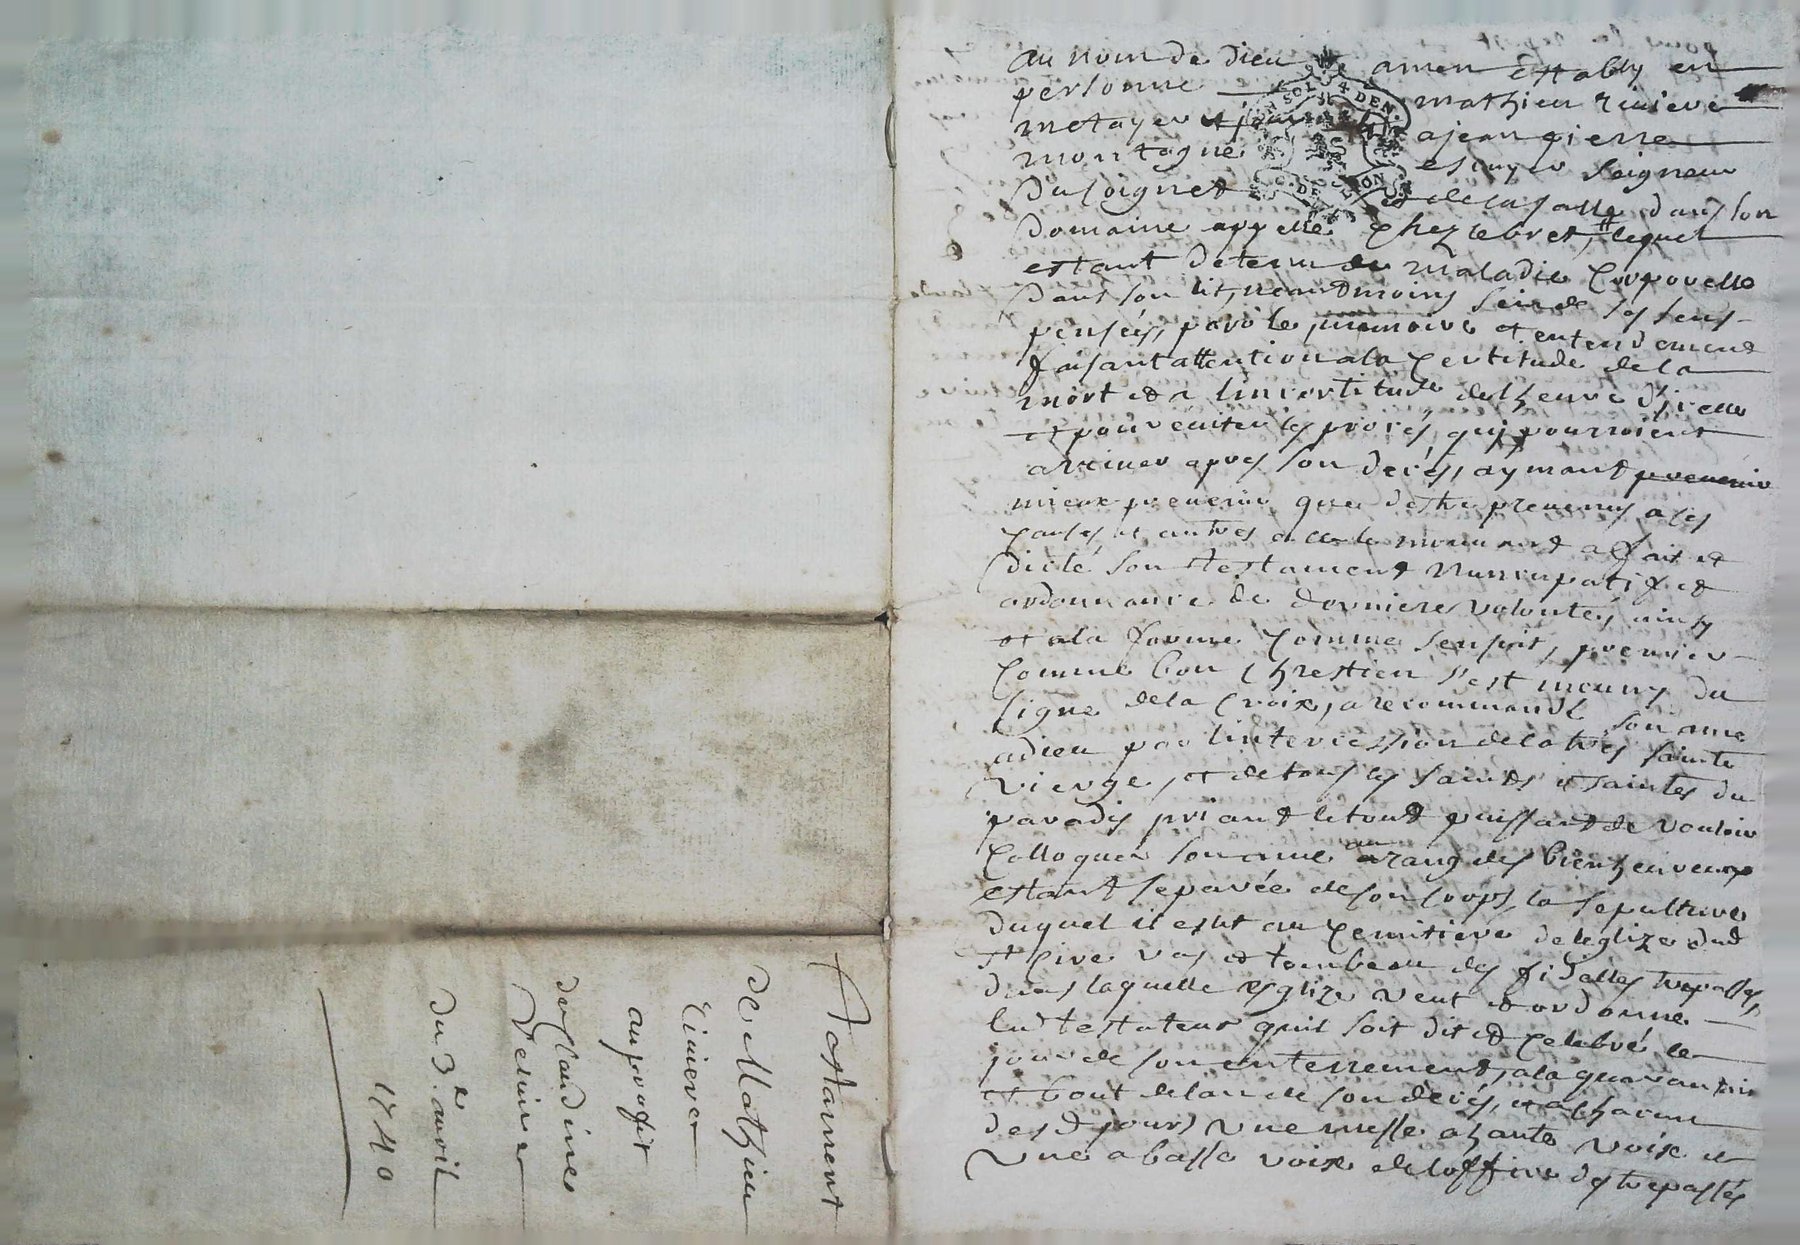 Testament
de Mathieu
Riviere
au proffit
de Claudine
du 3e avril
1740
au nom de Dieu amen estably en
personne mathieu riviere
metayer a jean pierre
montagne escuyer seigneur
du poignet et de la salle dans son
Domaine appellé chez lebret, lequel
estant detenu de maladie corporelle
Dans son lit, neantmoins sein de ses sens
pensées, parole, memoire et entendement
faisant attention a la certitude de la
mort et a lincertitude de lheure dicelle
et pour eviter les procés qui pourroient
arriver apres son decés, aymant prevenir
mieux prevenir que destre prevenus a ces
causes et autres a ce le mouvant a fait et
dicté son testament nuncupatif et
ordonnance de derniere volonté, ainsy
et a la forme comme sensuit, premier
comme bon chrestien s'est meuny du
signe de la Croix, a recommandé son ame
a dieu par lintercession de la tres sainte
vierge, et de tous les saints et saintes du
paradis priant le tout puissant de vouloir
colloquer son ame au rang des bienheureux
estant separée de son corps, la sepulture
duquel il eslit au cemitiere de leglize dud
st cire vas et tombeau des fidelles trepassés,
dans laquelle esglize veut et ordonne
led testateur quil soit dit et celebré le
jour de son enterrement, a la quarantain
et bout de lan de son decés, et a chacun
desd jours une messe a haute voix et
une a basse voix de loffice des trepassés
SOLS 4 DEN.
G. DE LION